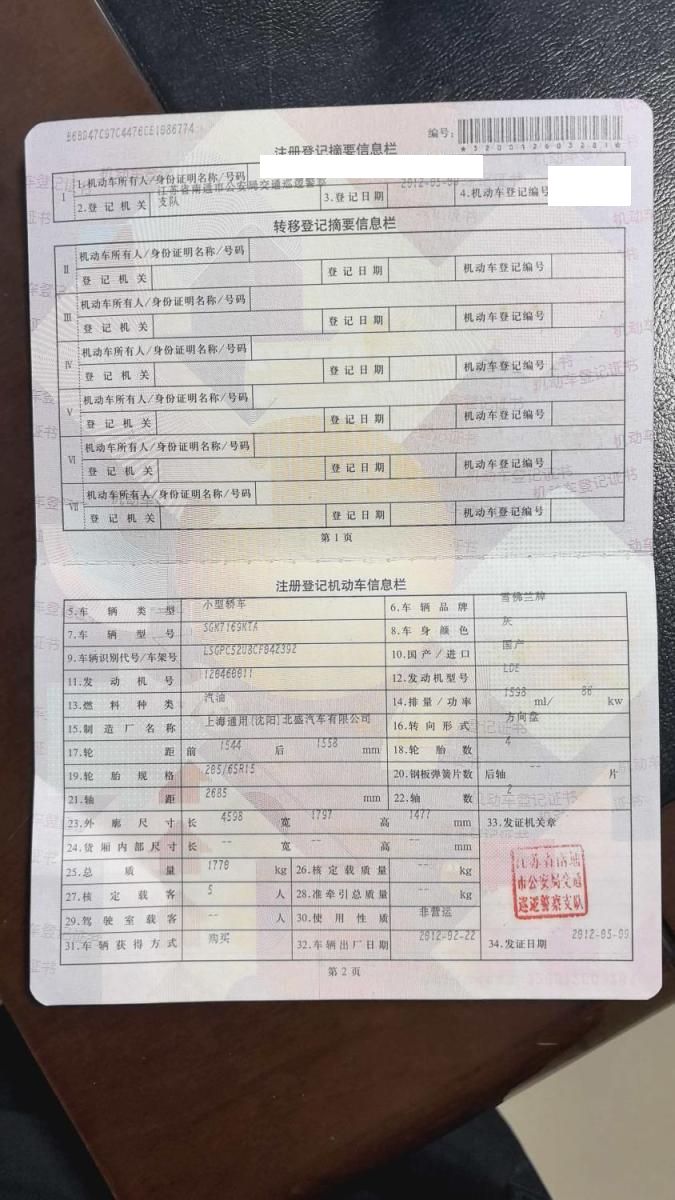 B6BD47C97C4476CE1986774
编号:
*320012603281*
注册登记摘要信息栏
I 1.机动车所有人/身份证明名称/号码
2.登记机关 江苏省南通市公安局交通巡逻警察支队 3.登记日期 2012-05-09 4.机动车登记编号
转移登记摘要信息栏
II 机动车所有人/身份证明名称/号码
登记机关 登记日期 机动车登记编号
III 机动车所有人/身份证明名称/号码
登记机关 登记日期 机动车登记编号
IV 机动车所有人/身份证明名称/号码
登记机关 登记日期 机动车登记编号
V 机动车所有人/身份证明名称/号码
登记机关 登记日期 机动车登记编号
VI 机动车所有人/身份证明名称/号码
登记机关 登记日期 机动车登记编号
VII 机动车所有人/身份证明名称/号码
登记机关 登记日期 机动车登记编号
第1页
注册登记机动车信息栏
5.车辆类型 小型轿车 6.车辆品牌 雪佛兰牌
7.车辆型号 SGM7169MTA 8.车身颜色 灰
9.车辆识别代号/车架号 LSGPC52U8CF042392 10.国产/进口 国产
11.发动机号 120460011 12.发动机型号 LDE
13.燃料种类 汽油 14.排量/功率 1598 ml/ 86 kw
15.制造厂名称 上海通用(沈阳)北盛汽车有限公司 16.转向形式 方向盘
17.轮距 前 1544 后 1558 mm 18.轮胎数 4
19.轮胎规格 205/65R15 20.钢板弹簧片数 后轴 -- 片
21.轴距 2685 mm 22.轴数 2
23.外廓尺寸 长 4598 宽 1797 高 1477 mm 33.发证机关章
24.货厢内部尺寸 长 -- 宽 -- 高 -- mm
25.总质量 1770 kg 26.核定载质量 -- kg
27.核定载客 5 人 28.准牵引总质量 -- kg
29.驾驶室载客 -- 人 30.使用性质 非营运
31.车辆获得方式 购买 32.车辆出厂日期 2012-02-22 34.发证日期 2012-05-09
江苏省南通
市公安局交通
巡逻警察支队
第2页